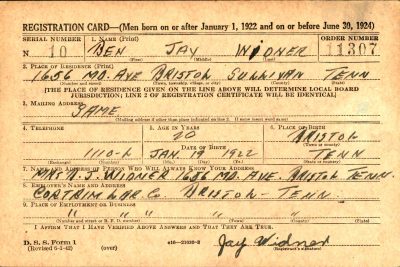 REGISTRATION CARD—(Men born on or after January 1, 1922 and on or before June 30, 1924)
SERIAL NUMBER 1. NAME (Print) ORDER NUMBER
N 10 BEN JAY WIDNER 11307
(First) (Middle) (Last)
2. PLACE OF RESIDENCE (Print)
1656 MD. AVE BRISTOL SULLIVAN TENN
(Number and street) (Town, township, village, or city) (County) (State)
[THE PLACE OF RESIDENCE GIVEN ON THE LINE ABOVE WILL DETERMINE LOCAL BOARD
JURISDICTION; LINE 2 OF REGISTRATION CERTIFICATE WILL BE IDENTICAL]
3. MAILING ADDRESS
SAME
[Mailing address if other than place indicated on line 2. If same insert word same]
4. TELEPHONE 5. AGE IN YEARS 6. PLACE OF BIRTH
20 BRISTOL
DATE OF BIRTH (Town or county)
1110-L JAN. 19 1922 TENN
(Exchange) (Number) (Mo.) (Day) (Yr.) (State or country)
7. NAME AND ADDRESS OF PERSON WHO WILL ALWAYS KNOW YOUR ADDRESS
WIDNER 1656 MD. AVE. BRISTOL TENN.
8. EMPLOYER'S NAME AND ADDRESS
BRISTOL - TENN.
9. PLACE OF EMPLOYMENT OR BUSINESS
" " " " "
(Number and street or R. F. D. number) (Town) (County) (State)
I AFFIRM THAT I HAVE VERIFIED ABOVE ANSWERS AND THAT THEY ARE TRUE.
D. S. S. Form 1
(Revised 6-1-42) (over) Jay Widner
(Registrant's signature)